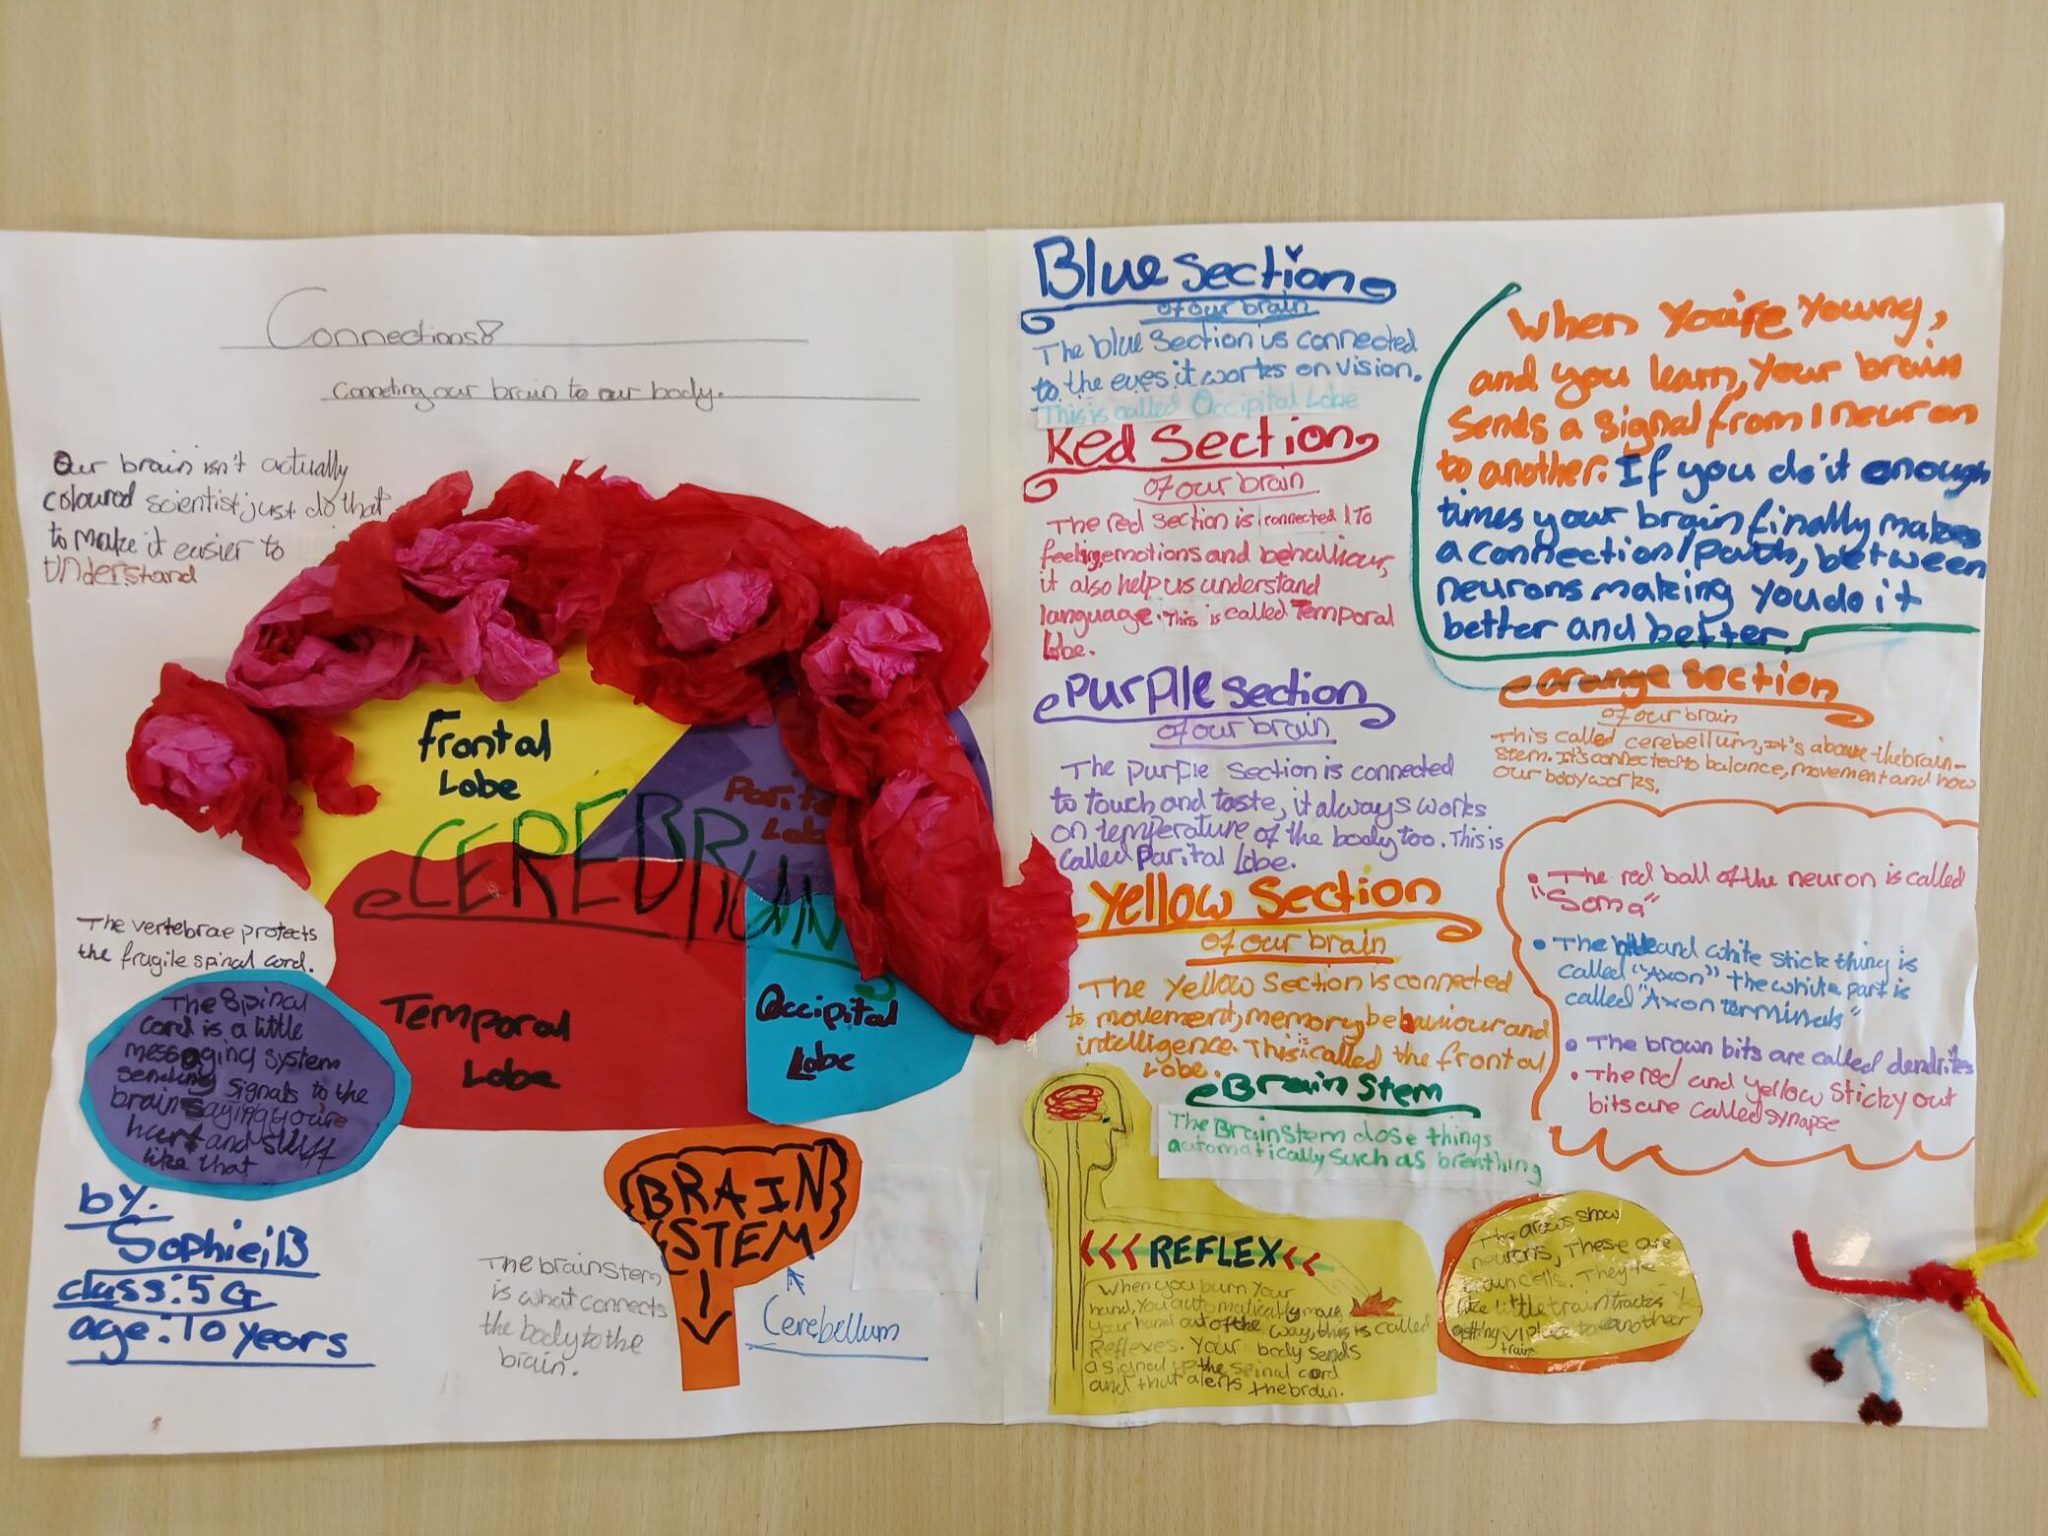 Connections:
Conneting our brain to our body.
Our brain isn't actually
coloured scientist just do that
to make it easier to
Understand
Frontal
Lobe
Parital
Lobe
CEREBRUM
Temporal
Lobe
Occipital
Lobe
The vertebrae protects
the fragile spinal cord.
The Spinal
cord is a little
messaging system
sending signals to the
brain saying you're
hurt and stuff
like that
by:
Sophie B
class: 5G
age: 10 years
BRAIN
STEM
The brainstem
is what connects
the body to the
brain.
Cerebellum
Blue section
of our brain
The blue section is connected
to the eyes it works on vision.
This is called Occipital Lobe
Red Section
of our brain
The red section is connected to
feeling, emotions and behaviour,
it also help us understand
language. This is called Temporal
Lobe.
Purple section
of our brain
The purple section is connected
to touch and taste, it always works
on temperature of the body too. This is
called Parital Lobe.
Yellow Section
of our brain
The Yellow Section is connected
to movement, memory, behaviour and
intelligence. This is called the frontal
Lobe.
Brain Stem
The Brainstem dose things
automatically such as breathing
REFLEX
When you burn your
hand, you automatically move
your hand out of the way, this is called
Reflexes. Your body sends
a signal up the spinal cord
and that alerts the brain.
When You're Young,
and you learn, Your brain
Sends a signal from 1 neuron
to another. If you do it enough
times your brain finally makes
a connection/path, between
neurons making you do it
better and better.
orange Section
of our brain
This called cerebellum, It's above the brain-
stem. It's connected to balance, movement and how
our body works.
• The red ball of the neuron is called
"Soma"
• The blue and white stick thing is
called "Axon" the white part is
called "Axon terminals"
• The brown bits are called dendrites
• The red and yellow sticky out
bits are called synapse
The arrows show
neurons, These are
brain cells. They're
like little train tracks
getting 1 place to another
train